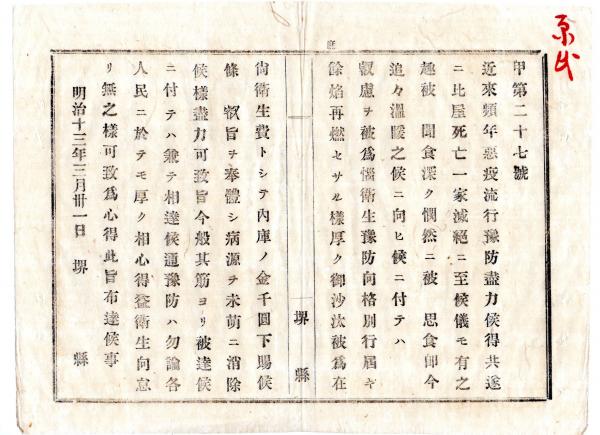 甲第二十七號
近來頻年惡疫流行豫防盡力候得共遂
ニ比屋死亡一家滅絶ニ至候儀モ有之
趣被　聞食深ク憫然ニ被　思食即今
追々溫暖之候ニ向ヒ候ニ付テハ
叡慮ヲ被爲惱衛生豫防向格別行屆キ
餘焰再燃セサル樣厚ク御沙汰被爲在
堺　縣
尙衛生費トシテ內庫ノ金千圓下賜候
條　叡旨ヲ奉體シ病源ヲ未萌ニ消除
候樣盡力可致旨今般其筋ヨリ被達候
ニ付テハ兼テ相達候通豫防ハ勿論各
人民ニ於テモ厚ク相心得益衛生向怠
リ無之樣可致爲心得此旨布達候事
明治十三年三月卅一日　堺　縣